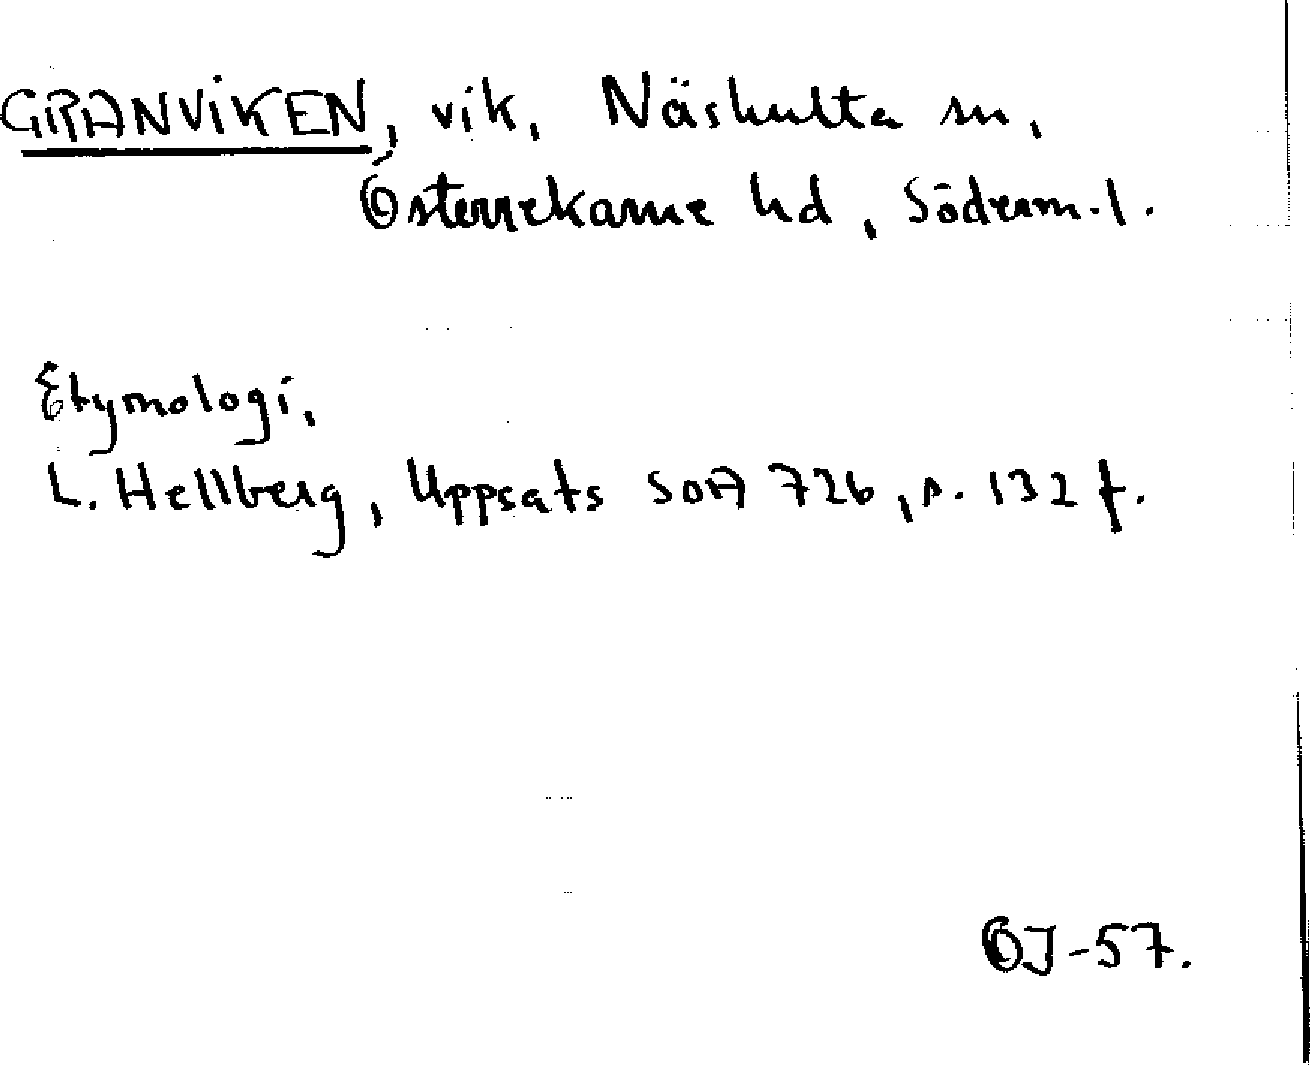 GRANVIKEN, vik, Näshulta sn,
Österrekarne hd, Söderm.l.
Etymologi,
L. Hellberg, Uppsats SOA 726, s. 132 f.
OJ-57.